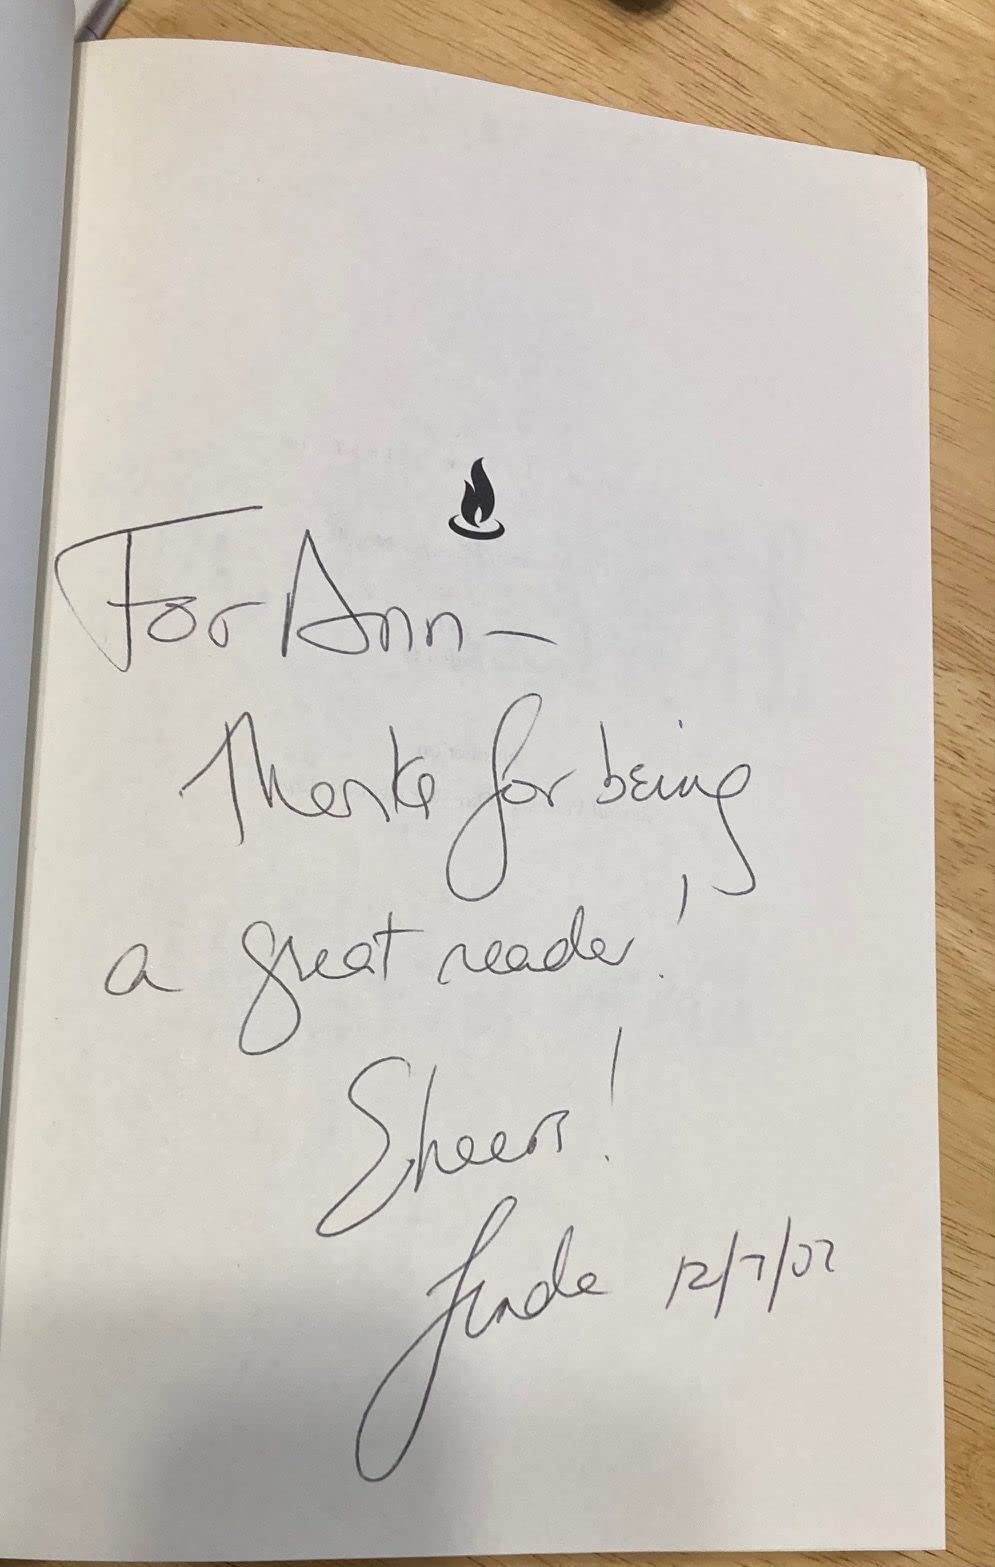 For Ann —
Thanks for being
a great reader!
Cheers!
Linda 12/7/07